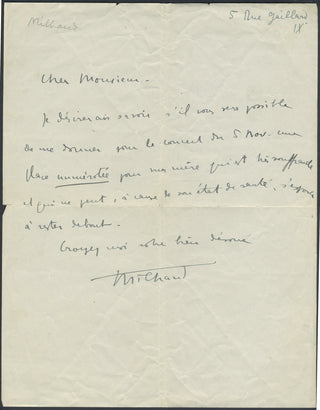 Milhaud
5 Rue Gaillard
IXe
Cher Monsieur -
Je désirerais savoir s'il vous sera possible
de me donner pour le concert du 5 Nov. une
place numérotée pour ma mère qui est très souffrante
et qui ne peut, à cause de son état de santé, s'exposer
à rester debout.
Croyez moi votre bien dévoué
Milhaud